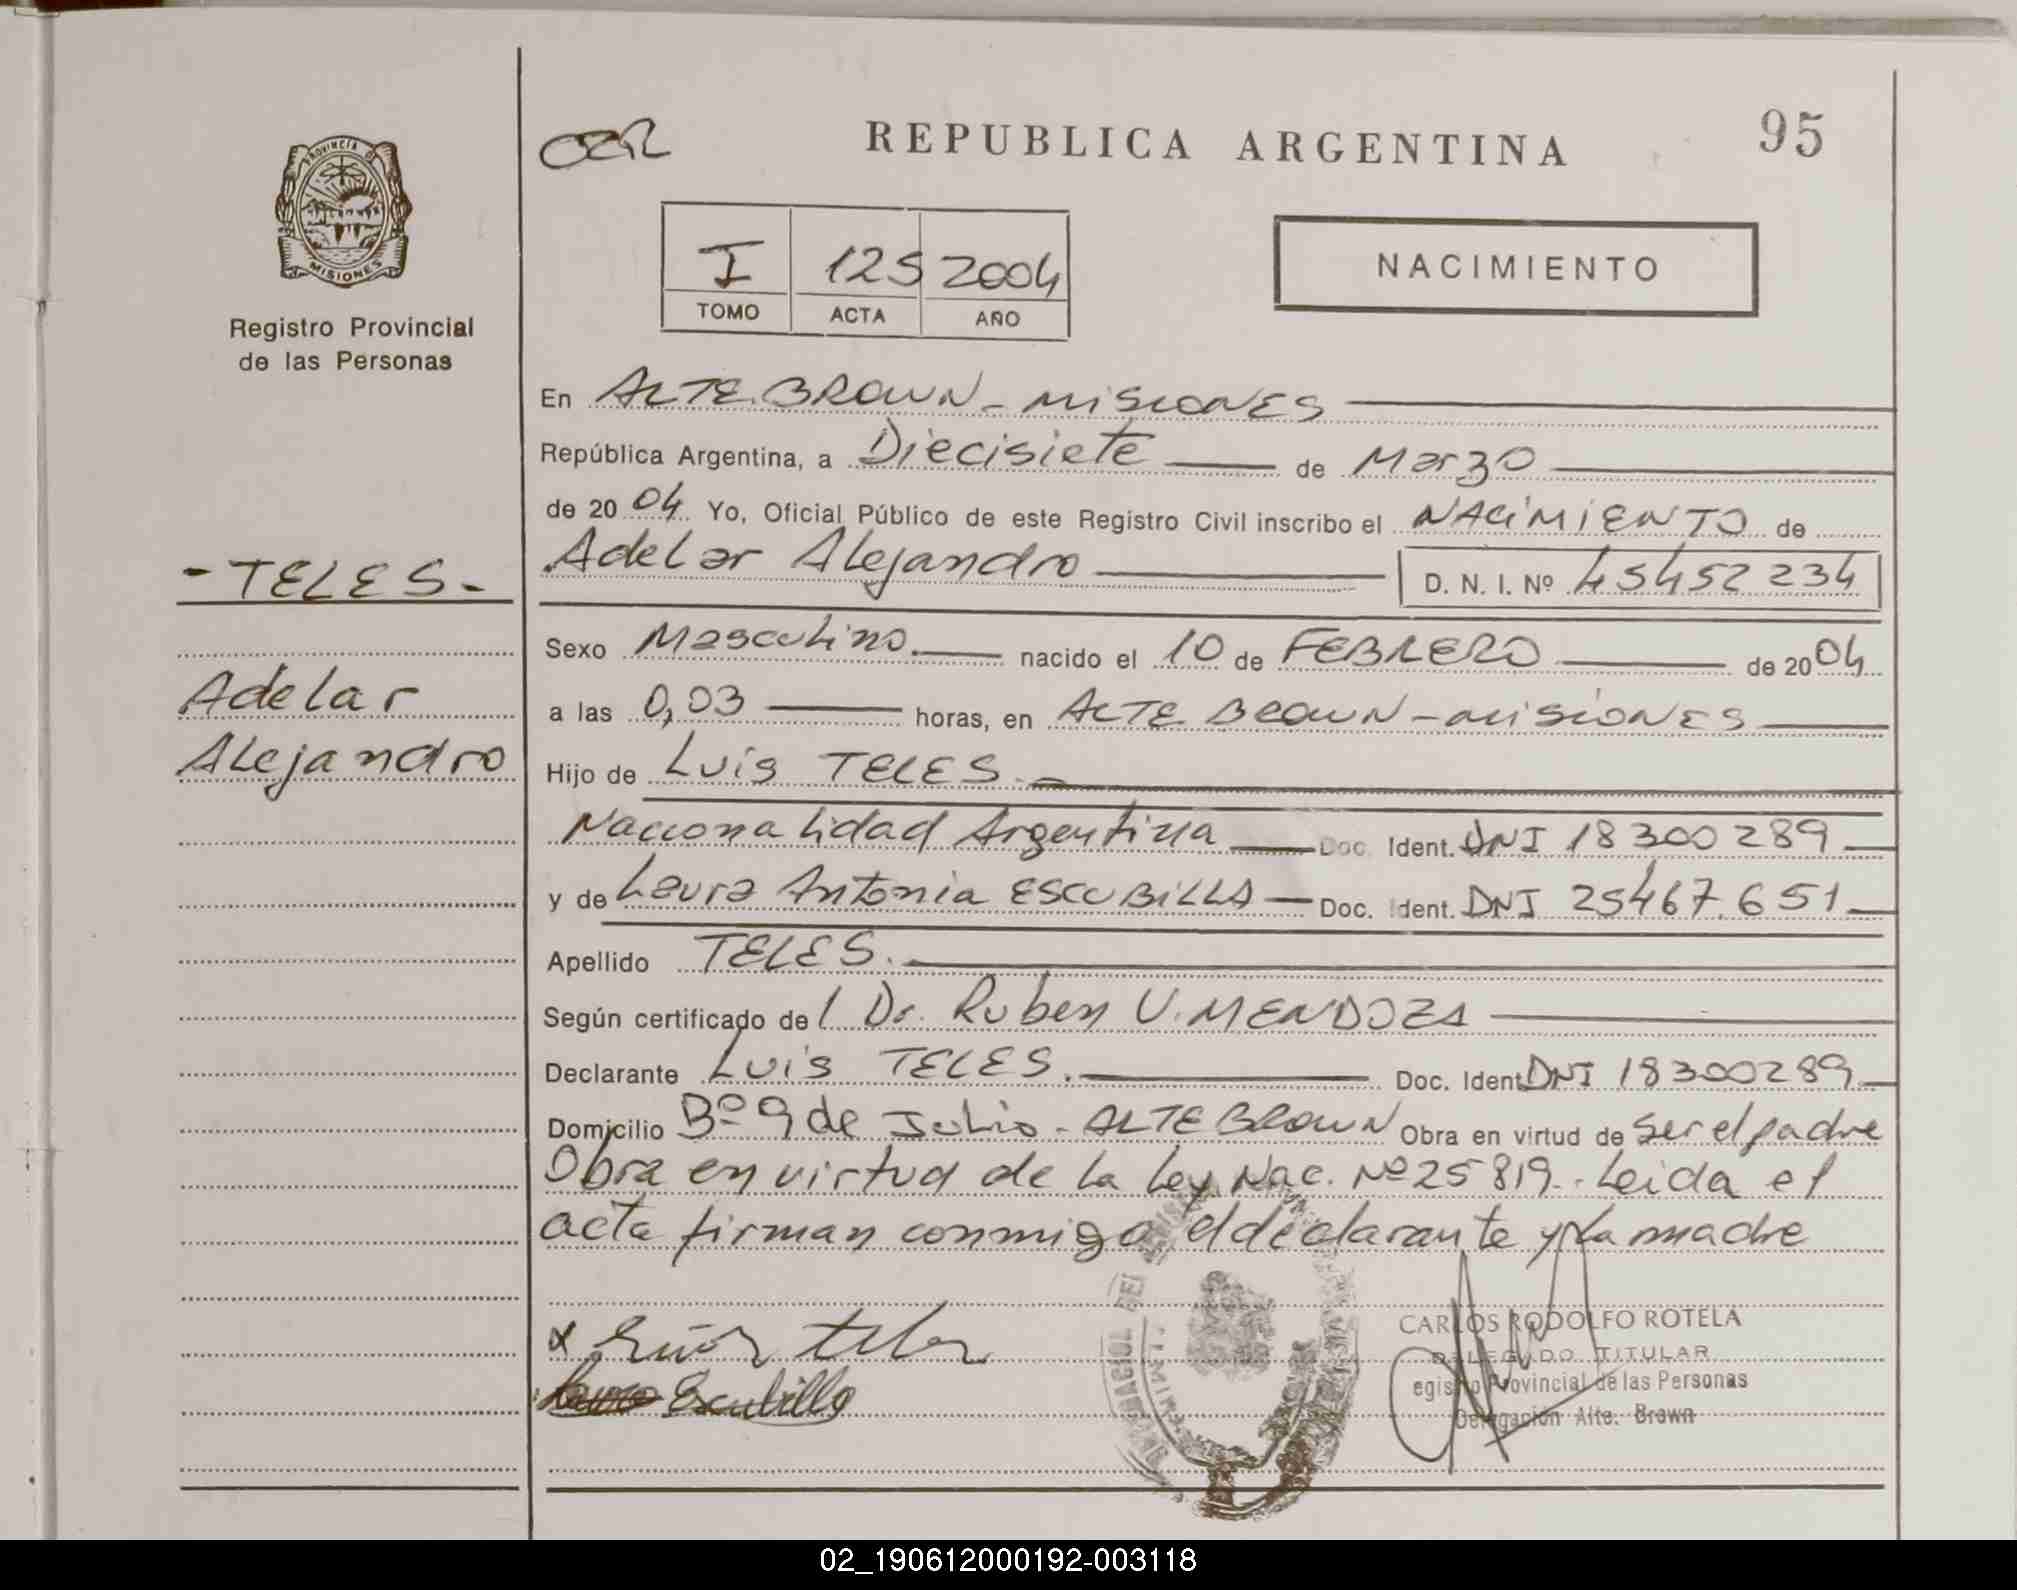 REPUBLICA ARGENTINA
95
PROVINCIA DE
MISIONES
Registro Provincial
de las Personas
I 125 2004
TOMO ACTA AÑO
NACIMIENTO
En ALTE. BROWN - MISIONES
República Argentina, a Diecisiete de Marzo
de 20 04 Yo, Oficial Público de este Registro Civil inscribo el NACIMIENTO de
Adelar Alejandro D. N. I. Nº 45452234
- TELES -
Adelar
Alejandro
Sexo Masculino nacido el 10 de FEBRERO de 20 04
a las 0,03 horas, en ALTE BROWN - MISIONES
Hijo de Luis TELES.
Nacionalidad Argentina Doc. Ident. DNI 18300289
y de Laura Antonia ESCUBILLA Doc. Ident. DNI 25467.651
Apellido TELES.
Según certificado del Dr. Ruben V. MENDOZA
Declarante Luis TELES. Doc. Ident DNI 18300289
Domicilio Bº 9 de Julio - ALTE BROWN Obra en virtud de ser el padre
Obra en virtud de la Ley Nac. Nº 25819. Leida el
acta firman conmigo el declarante y la madre
Escubilla
CARLOS RODOLFO ROTELA
DELEGADO TITULAR
egistro Provincial de las Personas
Delegación Alte. Brown
02_190612000192-003118